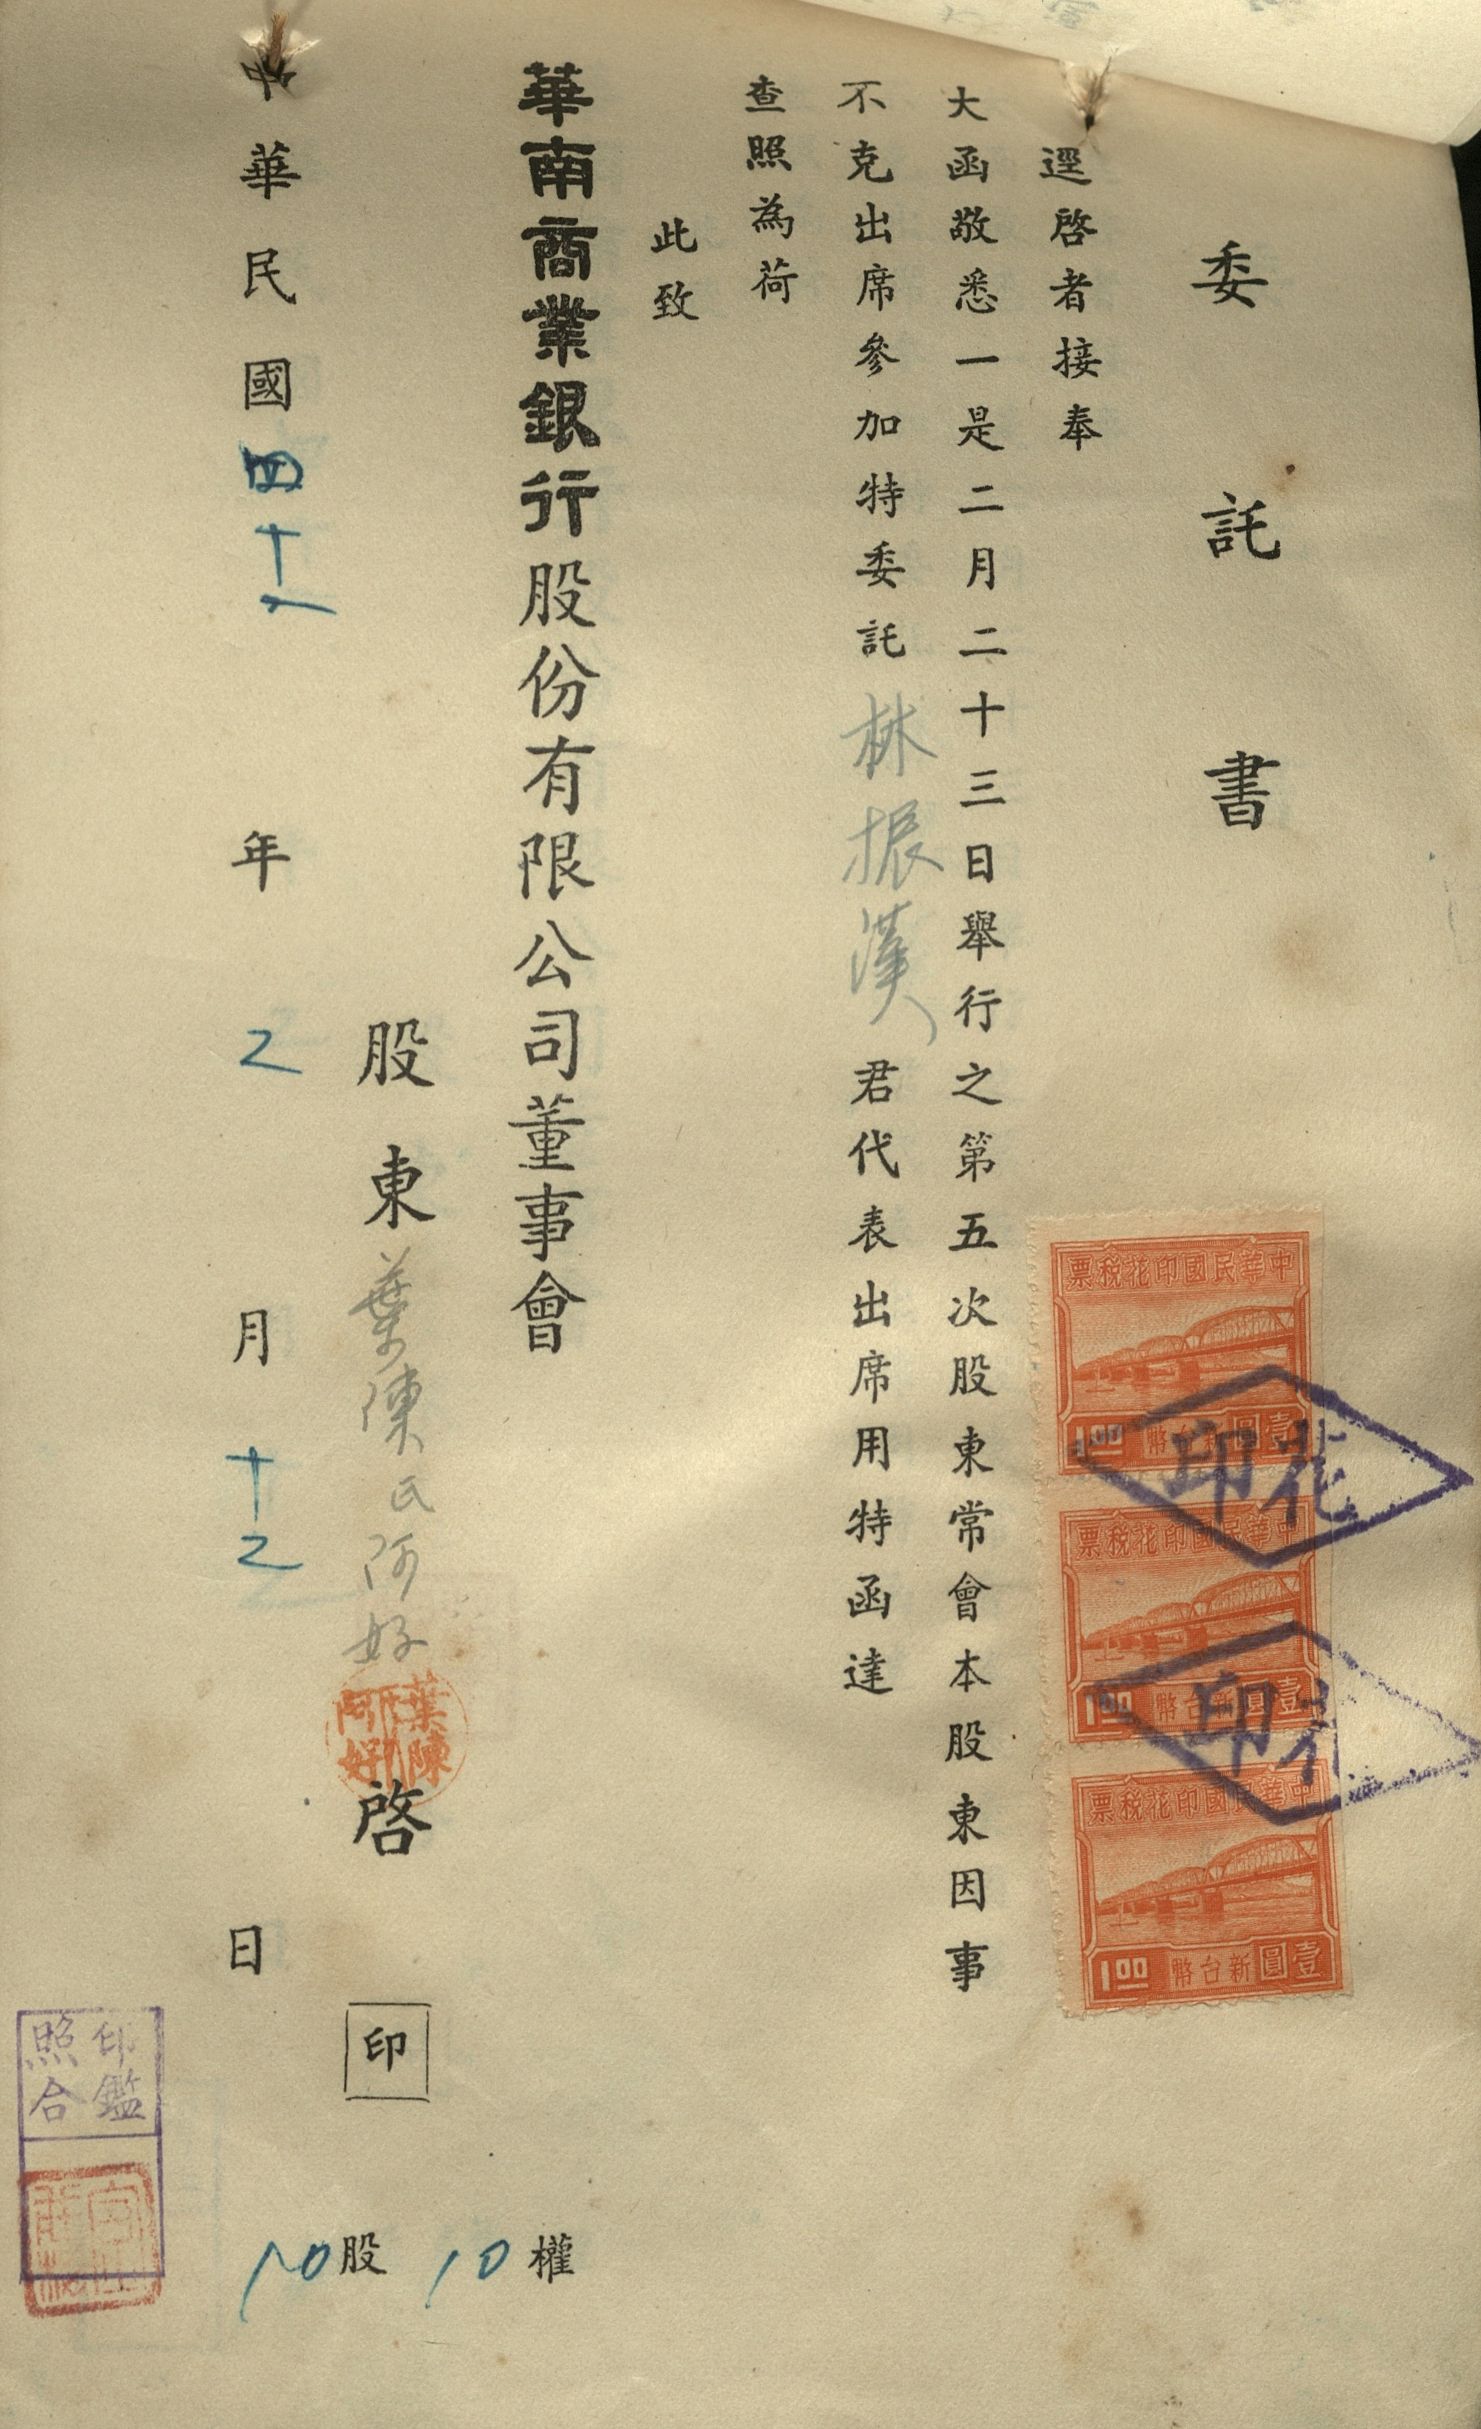 委託書
逕啓者接奉
大函敬悉一是二月二十三日舉行之第五次股東常會本股東因事
不克出席參加特委託林振漢君代表出席用特函達
查照為荷
此致
華南商業銀行股份有限公司董事會
股東葉陳氏阿好啓 印
葉陳氏阿好
中華民國四十一年2月十2日
10股 10權
中華民國印花稅票
壹圓新台幣1.00
中華民國印花稅票
壹圓新台幣1.00
中華民國印花稅票
壹圓新台幣1.00
花印
花印
印鑑
照合